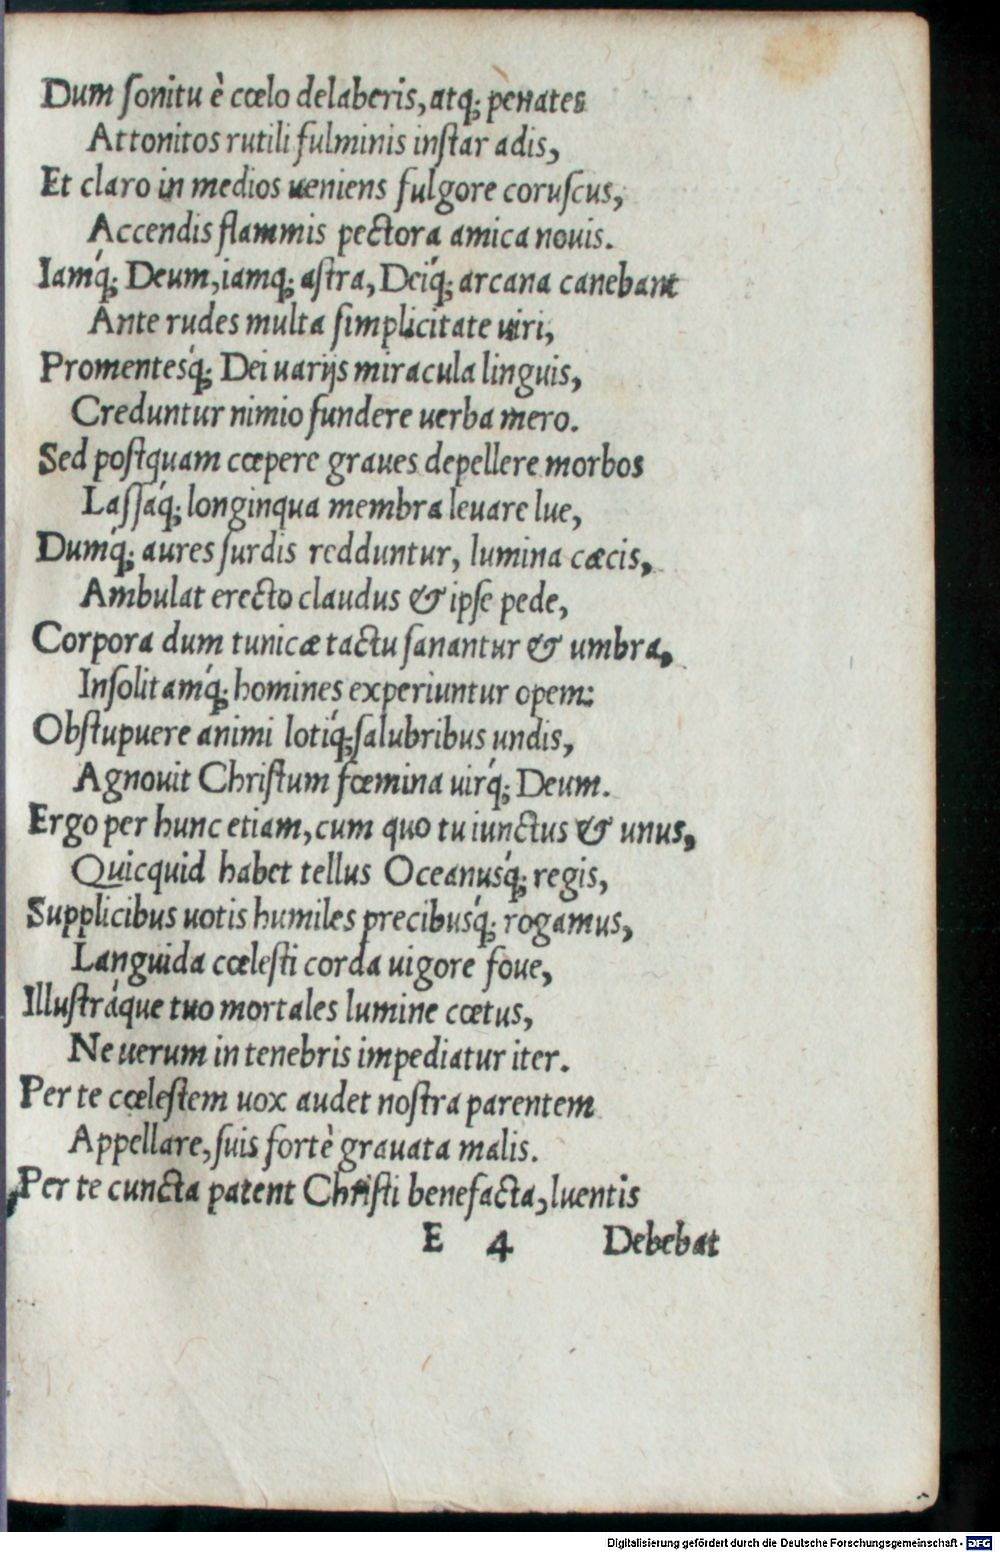 Dum ſonitu è cœlo delaberis, atq́; penates
Attonitos rutili fulminis inſtar adis,
Et claro in medios ueniens fulgore coruſcus,
Accendis flammis pectora amica nouis.
Iamq́; Deum, iamq; aſtra, Deiq́; arcana canebant
Ante rudes multa ſimplicitate uiri,
Promentesq́; Dei uarijs miracula linguis,
Creduntur nimio fundere uerba mero.
Sed poſtquam cœpere graues depellere morbos
Laſſaq́; longinqua membra leuare lue,
Dumq́; aures ſurdis redduntur, lumina cæcis,
Ambulat erecto claudus & ipſe pede,
Corpora dum tunicæ tactu ſanantur & umbra,
Inſolitamq́; homines experiuntur opem:
Obſtupuere animi lotiq́; ſalubribus undis,
Agnouit Chriſtum fœmina uirq́; Deum.
Ergo per hunc etiam, cum quo tu iunctus & unus,
Quicquid habet tellus Oceanusq́; regis,
Supplicibus uotis humiles precibusq́; rogamus,
Languida cœleſti corda uigore foue,
Illuſtráque tuo mortales lumine cœtus,
Ne uerum in tenebris impediatur iter.
Per te cœleſtem uox audet noſtra parentem
Appellare, ſuis fortè grauata malis.
Per te cuncta patent Chriſti benefacta, luentis
E 4 Debebat
Digitalisierung gefördert durch die Deutsche Forschungsgemeinschaft - DFG